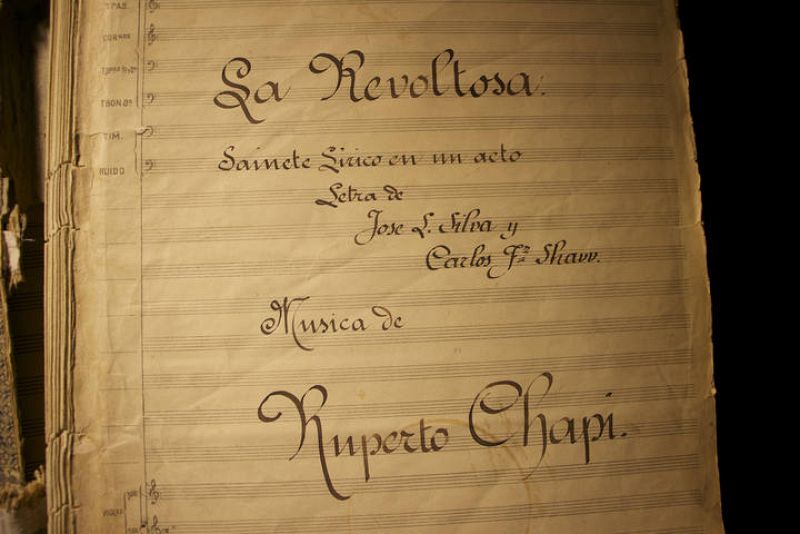 TPAS.
CORNOS
TBON Os
TIM.
RUIDO
La Revoltosa.
Sainete Lirico en un acto
Letra de
Jose L. Silva y
Carlos Fz Shaw.
Musica de
Ruperto Chapi.